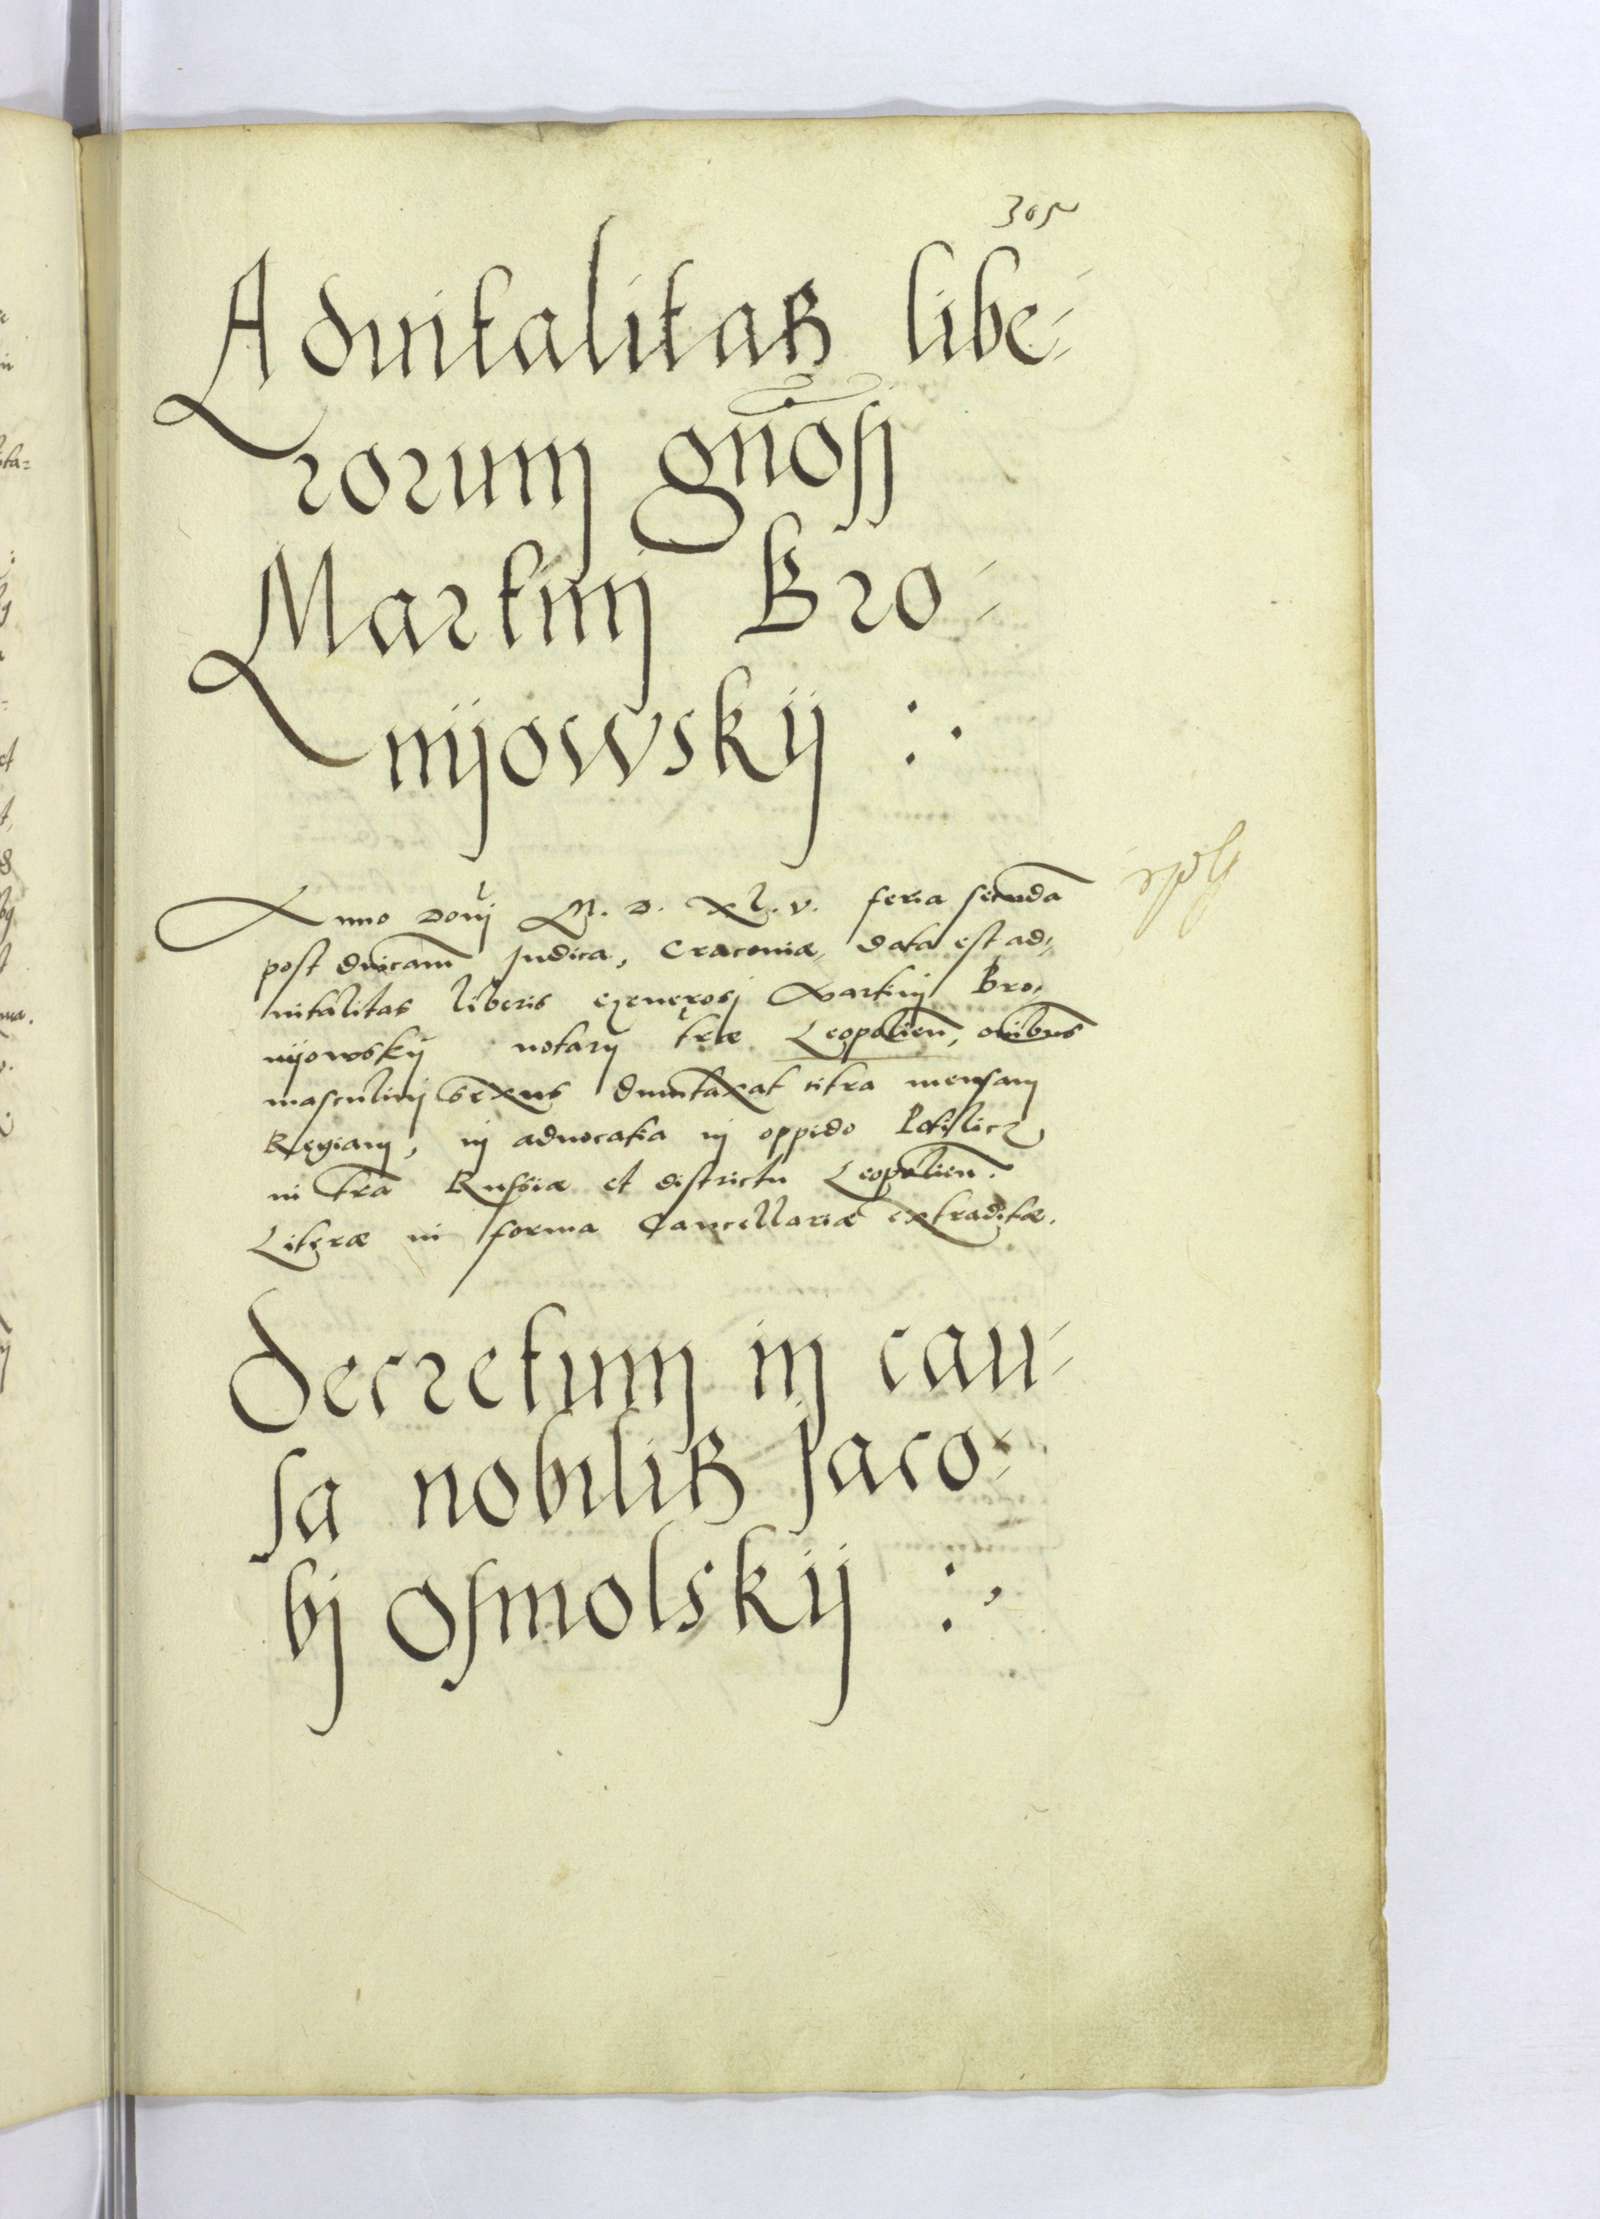 305
Advitalitas libe-
rorum gnosi
Martini Bro-
nijowskij :.
Anno Doni M. D. XL. V. feria secunda
post dnicam Judica, Cracoviæ, data est ad-
vitalitas liberis generosi Martini Bro-
nijowskij notarij træ Leopolien, omibus
masculini sexus duntaxat citra mensam
Regiam, in advocatia in oppido Potilicz
in tra Russiæ et districtu Leopolien.
Literæ in forma Cancellariæ extraditæ.
Decretum in cau-
sa nobilis Jaco-
bi Osmolskij :.